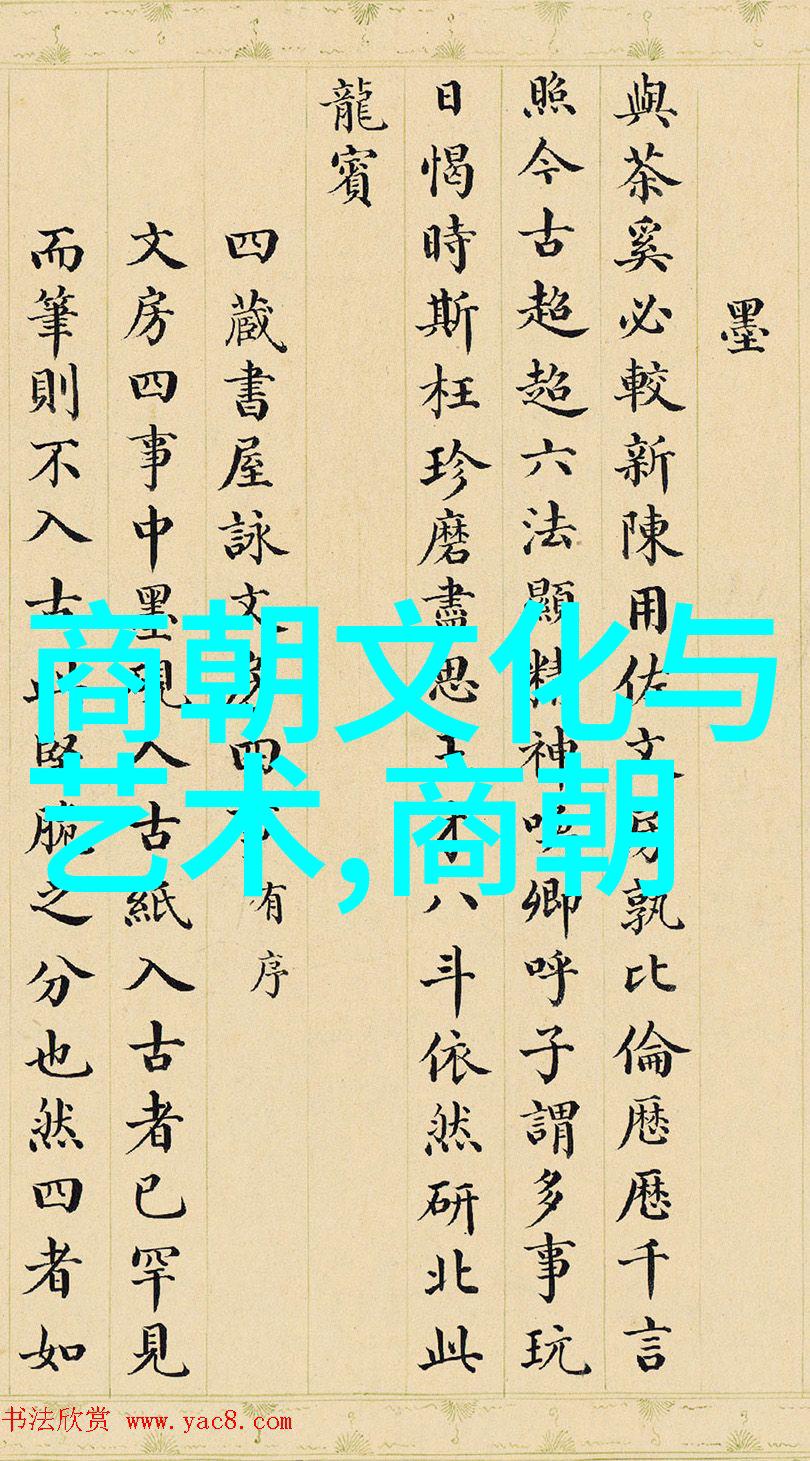 墨
與茶奚必較新陳用佐文房孰比倫歷歷千言
照今古超超六法顯精神呼卿呼子謂多事玩
日愒時斯枉珍磨盡思王才八斗依然研北此
龍賓
四蔵書屋詠文房四事有序
文房四事中墨現入古紙入古者已罕見
而筆則不入古此堅脆之分也然四者如
商朝文化与
艺术,商朝
书法欣赏 www.yac8.com